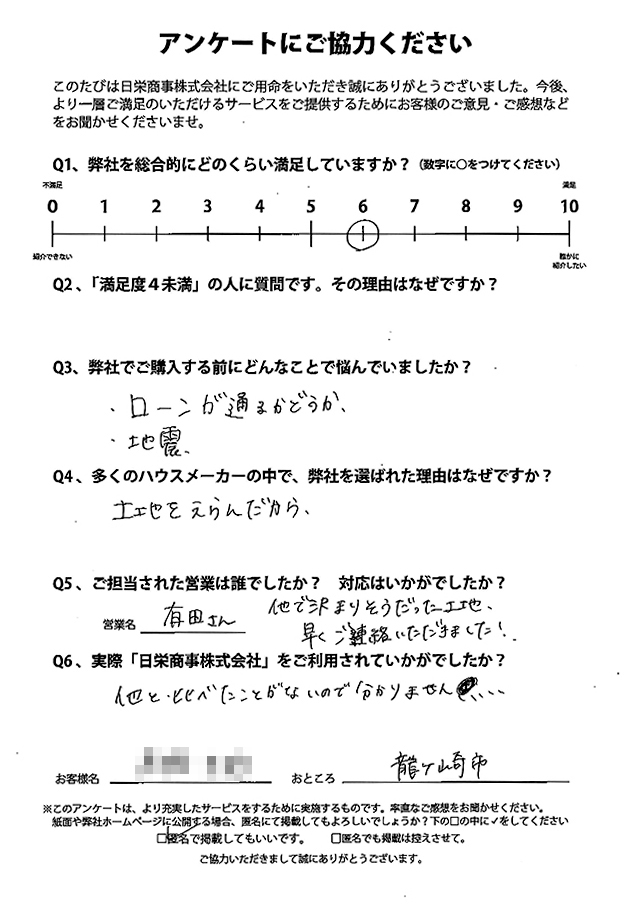 アンケートにご協力ください
このたびは日栄商事株式会社にご用命をいただき誠にありがとうございました。今後、
より一層ご満足のいただけるサービスをご提供するためにお客様のご意見・ご感想など
をお聞かせくださいませ。
Q1、弊社を総合的にどのくらい満足していますか？（数字に○をつけてください）
不満足 満足
0 1 2 3 4 5 6 7 8 9 10
紹介できない 誰かに
紹介したい
Q2、「満足度４未満」の人に質問です。その理由はなぜですか？
Q3、弊社でご購入する前にどんなことで悩んでいましたか？
・ローンが通るかどうか、
・地震、
Q4、多くのハウスメーカーの中で、弊社を選ばれた理由はなぜですか？
土地をえらんだから、
Q5、ご担当された営業は誰でしたか？ 対応はいかがでしたか？
営業名 有田さん 他で決まりそうだった土地、
早くご連絡いただきました！
Q6、実際「日栄商事株式会社」をご利用されていかがでしたか？
他と比べたことがないので分かりません、、、
お客様名 おところ 龍ヶ崎市
※このアンケートは、より充実したサービスをするために実施するものです。率直なご感想をお聞かせください。
紙面や弊社ホームページに公開する場合、匿名にて掲載してもよろしいでしょうか？下の□の中に✓をしてください
□匿名で掲載してもいいです。 □匿名でも掲載は控えさせて。
ご協力いただきまして誠にありがとうございます。